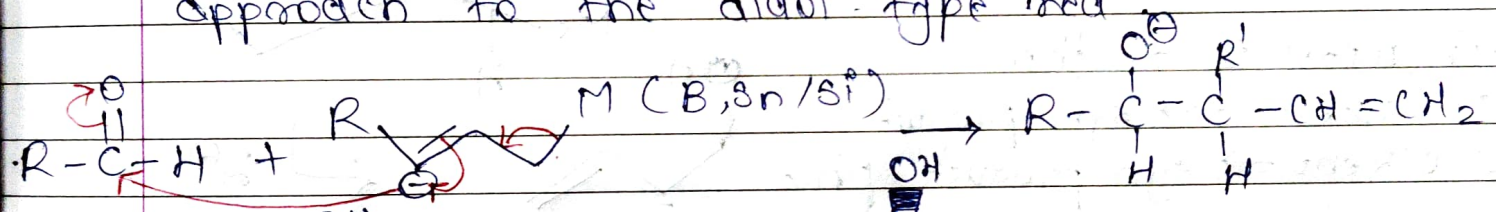 approach to the aldol type
O O⊖ R'
|| R M (B,Sn/Si) | |
R-C-H + ⊖ → R-C-C-CH=CH2
OH H H